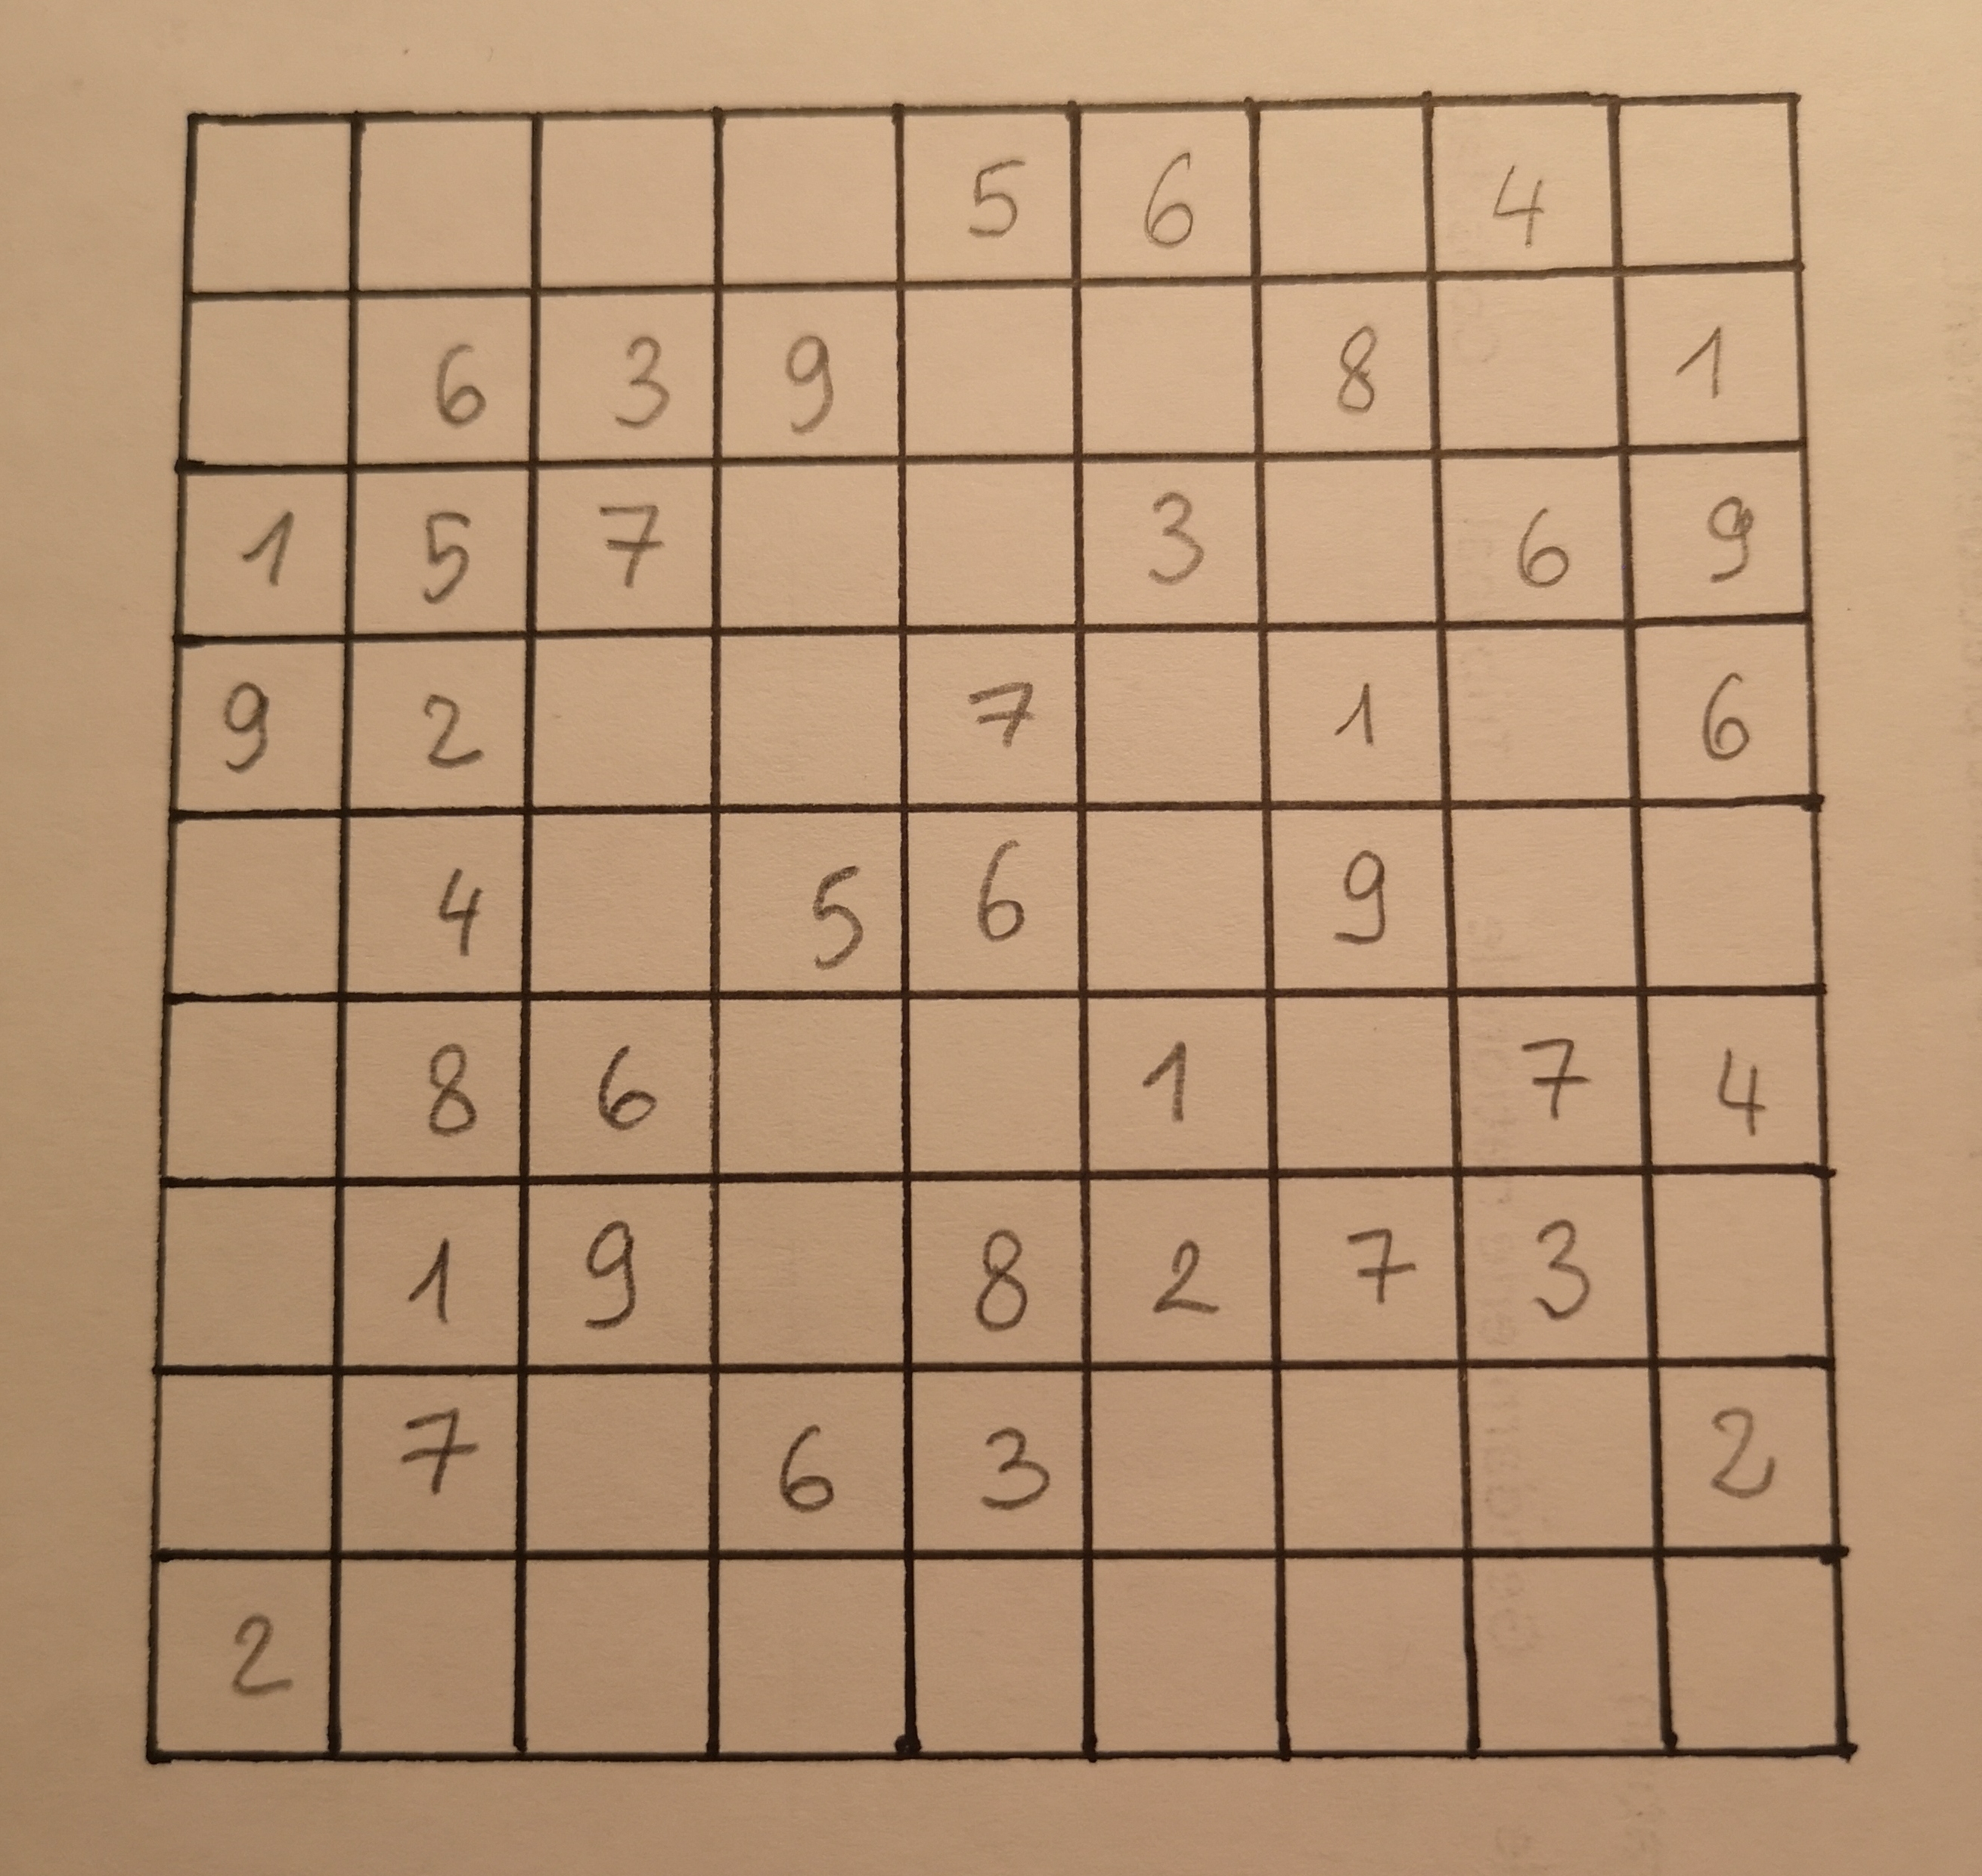 5 6 4
6 3 9 8 1
1 5 7 3 6 9
9 2 7 1 6
4 5 6 9
8 6 1 7 4
1 9 8 2 7 3
7 6 3 2
2